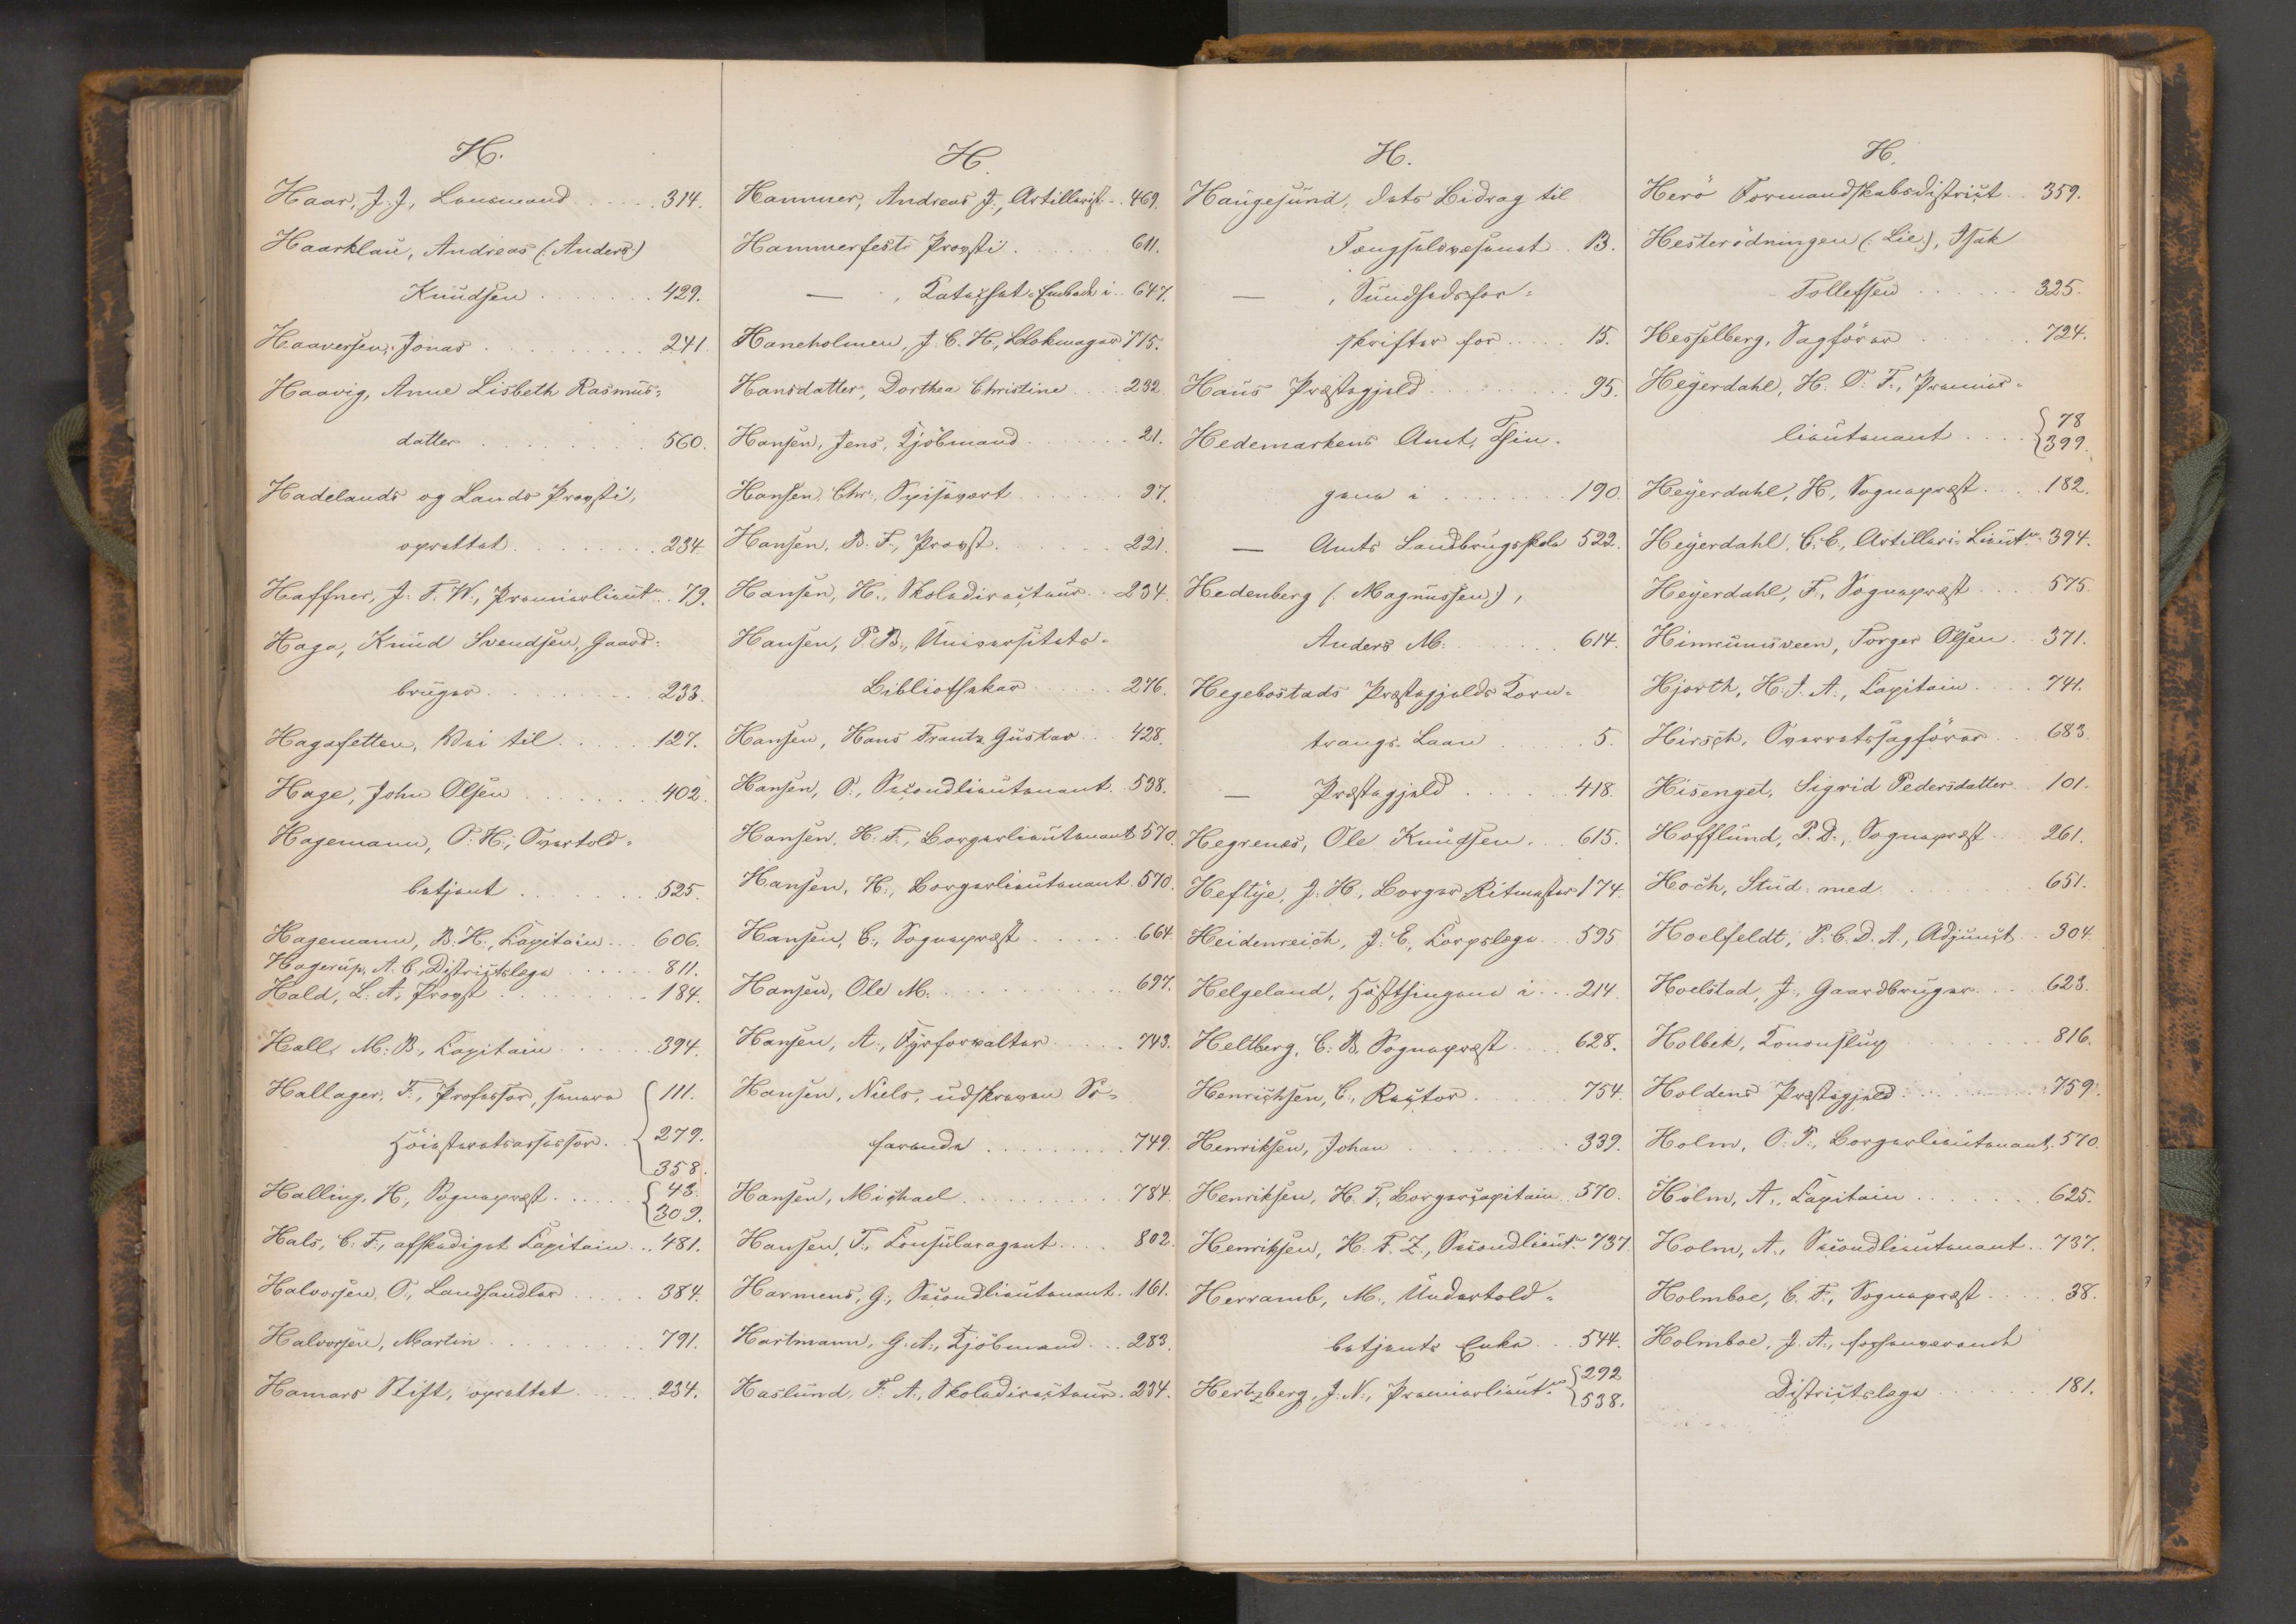 H.
Haar, J. J., Lensmand . . . . . 314.
Haarklau, Andreas (: Anders:)
Knudsen . . . . . . . 429.
Haaversen, Jonas . . . . . . . . . 241.
Haavig, Anne Lisbeth Rasmus-
datter . . . . . . . . 560.
Hadelands og Lands Provsti,
oprettet . . . . . . . . 234.
Haffner, J. F. W., Premierlieutn. . 79.
Haga, Knud Svendsen, Gaard-
bruger . . . . . . . . 233.
Hagasetten, Vei til . . . . . 127.
Hage, John Olsen . . . . . . . 402.
Hagemann, O. H., Overtold-
betjent . . . . . . . 525.
Hagemann, B. H., Capitain . . . 606.
Hagerup, A. C., Districtslæge . . . . . . 811.
Hald, L. A., Provst . . . . . . . . 184.
Hall, M. B., Capitain . . . . . 394.
Hallager, F., Professor, senere 111.
Höiesteretsassessor . . 279.
358.
Halling, H., Sognepræst . . . . . 43.
309.
Hals, C. F., afskediget Capitain . . 481.
Halvorsen, O., Landhandler . . . . . 384.
Halvorsen, Martin . . . . . . . . . 791.
Hamars Stift, oprettet . . . . . 234.
H.
Hammer, Andreas J., Artillerist . . 469.
Hammerfest Provsti . . . . . . 611.
— , Catechet-Embede i . . 647.
Haneholmen, J. C. H., Klokmager 775.
Hansdatter, Dorthea Christine . . . . 232.
Hansen, Jens, Kjöbmand . . . . . . 21.
Hansen, Chr., Spisevert . . . . . . 37.
Hansen, B. F., Provst . . . . . . 221.
Hansen, H., Skoledirecteur . . 234.
Hansen, P. B., Universitets-
Bibliothekar . . . . . 276.
Hansen, Hans Frantz Gustav . . . 428.
Hansen, O., Secondlieutenant . . 538.
Hansen, H. F., Borgerlieutenant 570.
Hansen, H., Borgerlieutenant . 570.
Hansen, C., Sognepræst . . . . . . 664.
Hansen, Ole M. . . . . . . . . . . 697.
Hansen, A., Fyrforvalter . . . . . 743.
Hansen, Niels, udskreven Sö-
farende . . . . . . . . . 749.
Hansen, Michael . . . . . . . . . . 784.
Hansen, F., Consularagent . . . . 802.
Harmens, G., Secondlieutenant . 161.
Hartmann, G. A., Kjöbmand . . . 283.
Haslund, F. A., Skoledirecteur . 234.
H.
Haugesund, dets Bidrag til
Fængselsvesenet . 13.
— , Sundhedsfor-
skrifter for . . . . . 15.
Haus Præstegjeld . . . . . . . . . 95.
Hedemarkens Amt, Thin-
gene i . . . . . . . 190.
— Amts Landbrugsskole 522.
Hedenberg (: Magnussen:),
Anders M. . . . . . . . 614.
Hegebostads Præstegjelds Korn-
trangs-Laan . . . . . 5.
— Præstegjeld . . . . . 418.
Hegrenes, Ole Knudsen . . . 615.
Heftye, J. H., Borger-Ritmester 174.
Heidenreich, J. E., Corpslæge . . 595
Helgeland, Höstthingene i . . . 214.
Heltberg, C. B., Sognepræst . . . . 628.
Henrichsen, C., Rector . . . . . . 754.
Henriksen, Johan . . . . . . . . . 339.
Henriksen, H. F., Borgercapitain . . 570.
Henriksen, H. F. Z., Secondlieutn. 737.
Herramb, M., Undertold-
betjents Enke . . . 544.
Hertzberg, J. N., Premierlieutn. 292
538.
H.
Herö Formandskabsdistrict . . 359.
Hesterödningen (: Lie:), Isak
Tollefsen . . . . . . 325.
Hesselberg, Sagförer . . . . . . 724.
Heyerdahl, H. O. F., Premier-
lieutenant . . . . 78
399.
Heyerdahl, H., Sognepræst . . . . 182.
Heyerdahl, C. C., Artilleri-Lieutn. 394.
Heyerdahl, F., Sognepræst . . . . 575.
Himrumsveen, Torger Olsen . . 371.
Hjorth, H. J. A., Capitain . . . . 741.
Hirsch, Overretssagförer . . . 683.
Hisenget, Sigrid Pedersdatter . . 101.
Hofflund, P. D., Sognepræst . . . 261.
Hoch, Stud. med. . . . . . . . 651.
Hoelfeldt, P. C. D. A., Adjunct . . 304.
Hoelstad, J., Gaardbruger . . . . 623.
Holbek, Kononslup . . . . . 816.
Holdens Præstegjeld . . . . . . . 759.
Holm, O. F., Borgerlieutenant, 570.
Holm, A., Capitain . . . . . . . 625.
Holm, A., Secondlieutenant . . 737.
Holmboe, C. F., Sognepræst . . . . . 38.
Holmboe, J. A., forhenværende
Districtslæge . . . . . . 181.